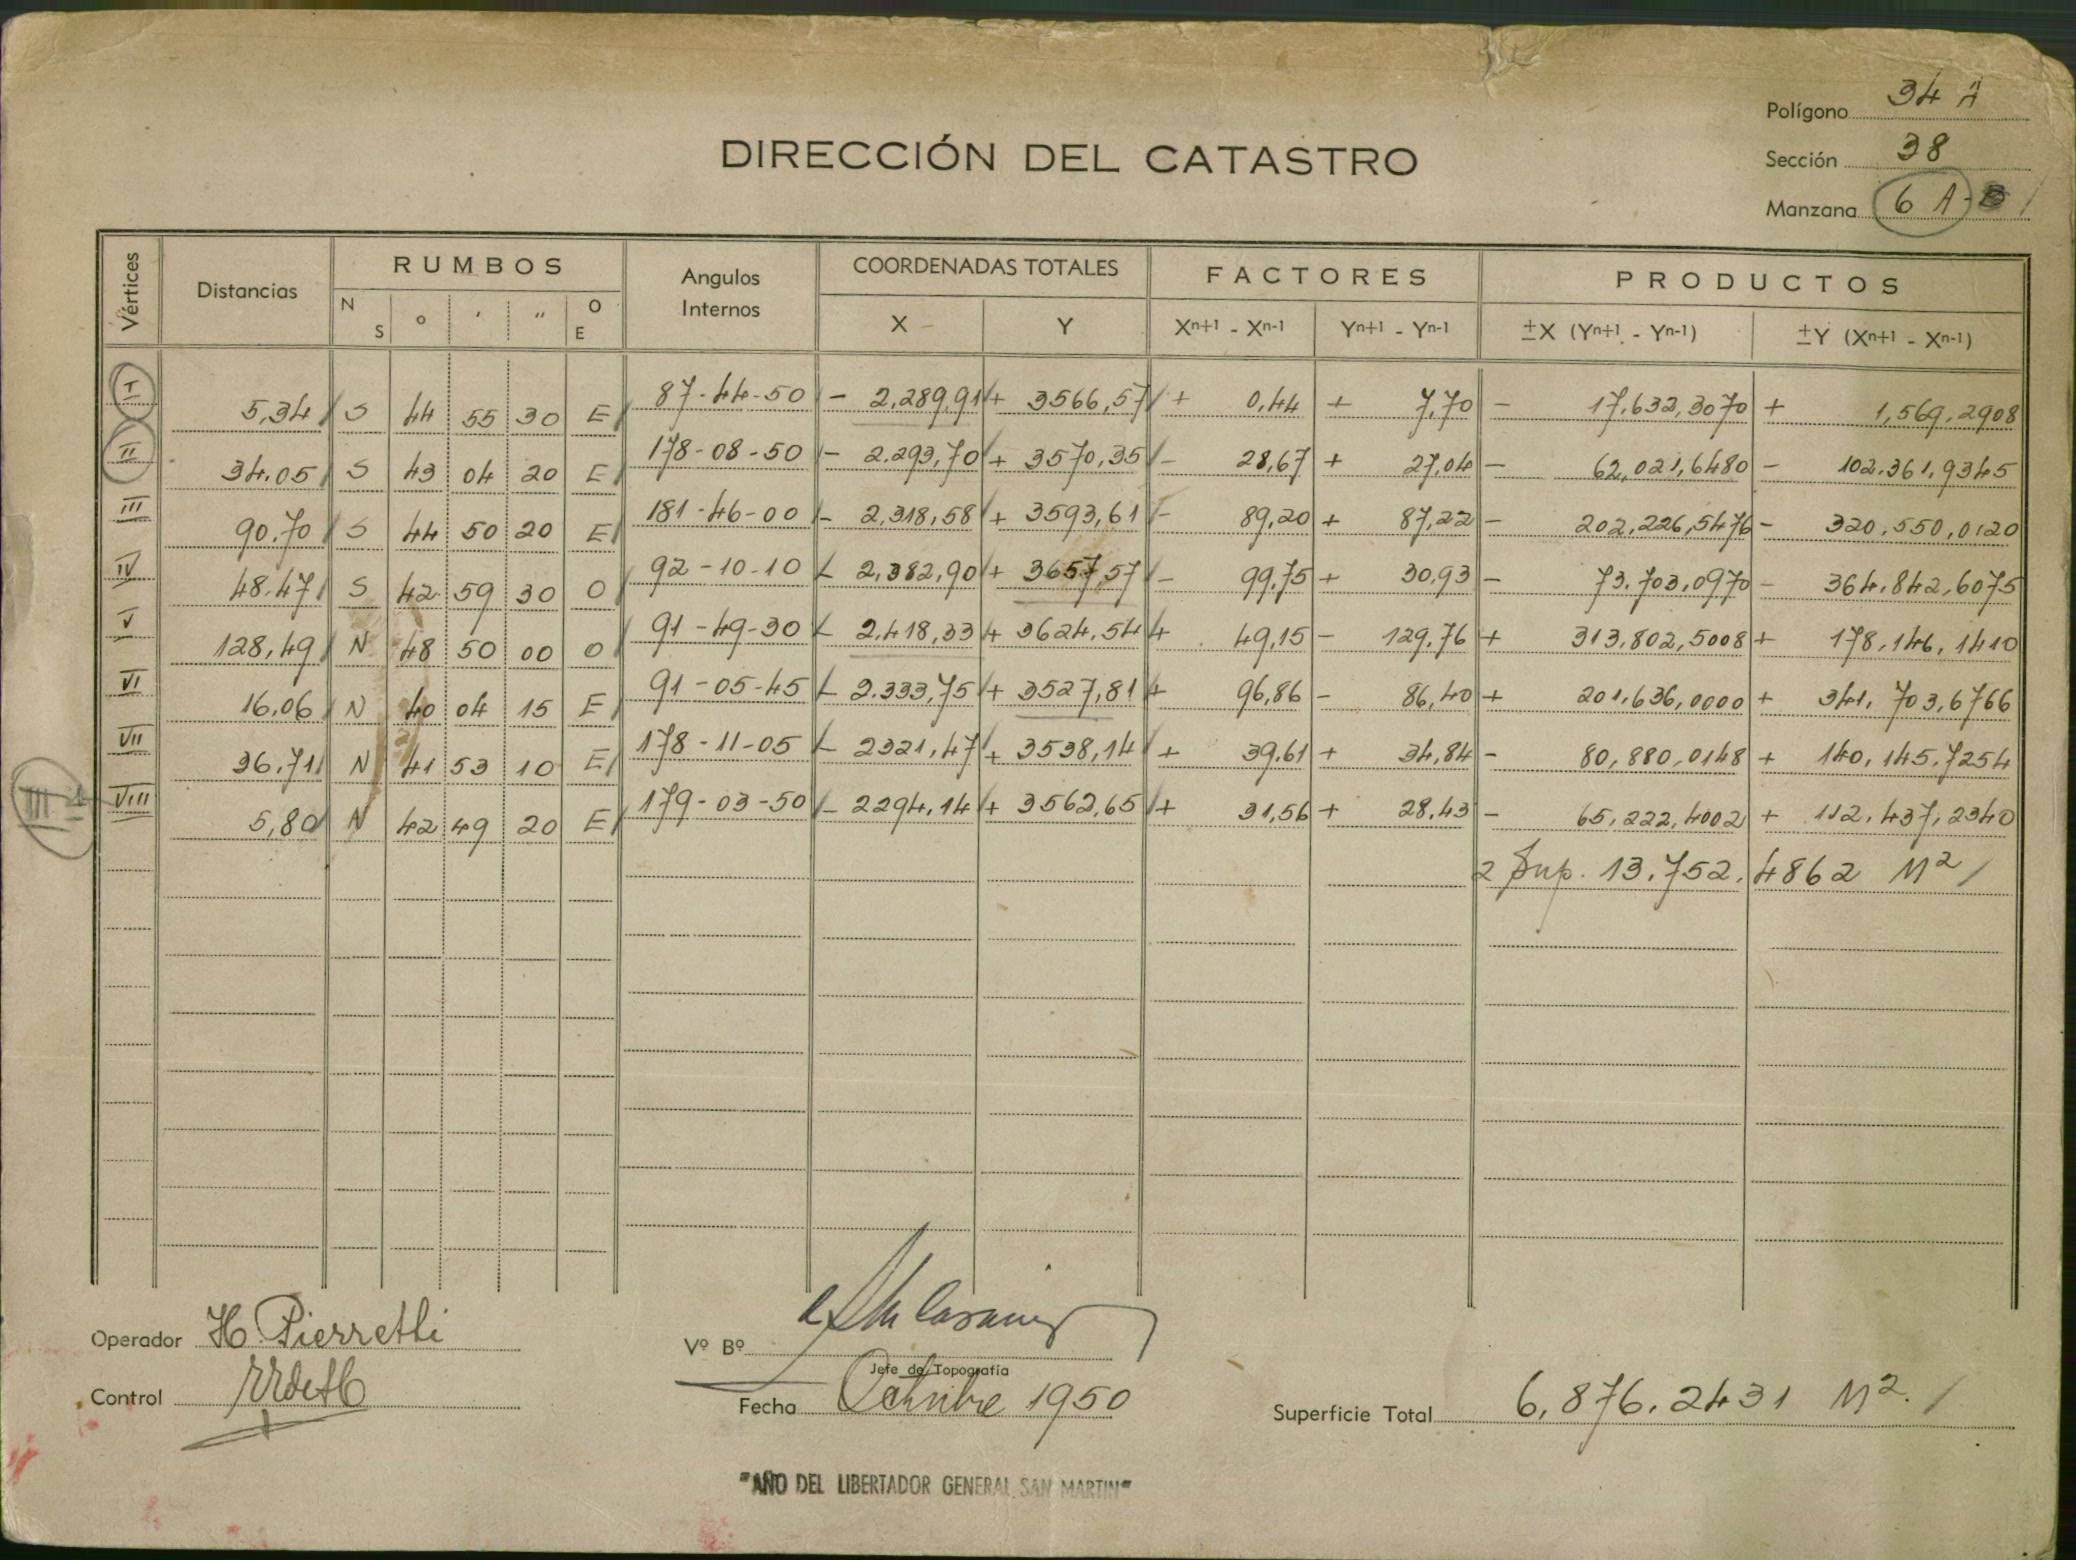 Polígono 34 A
Sección 38
Manzana 6 A-B
DIRECCIÓN DEL CATASTRO
Vértices Distancias RUMBOS Angulos Internos COORDENADAS TOTALES FACTORES PRODUCTOS
N S ° ' " O E X Y Xn+1 - Xn-1 Yn+1 - Yn-1 ±X (Yn+1 - Yn-1) ±Y (Xn+1 - Xn-1)
I 5,34 S 44 55 30 E 87-44-50 - 2,289,91 + 3566,57 + 0,44 + 7,70 - 17,632,3070 + 1,569,2908
II 34.05 S 43 04 20 E 178-08-50 - 2.293,70 + 3570,35 - 28,67 + 27,04 - 62,021,6480 - 102.361,9345
III 90.70 S 44 50 20 E 181-46-00 - 2,318,58 + 3593,61 - 89,20 + 87,22 - 202,226,5476 - 320,550,0120
IV 48.47 S 42 59 30 O 92-10-10 - 2,382,90 + 3657,57 - 99,75 + 30,93 - 73.703,0970 - 364,842,6075
V 128,49 N 48 50 00 O 91-49-30 - 2.418,33 + 3624,54 + 49,15 - 129,76 + 313,802,5008 + 178,146,1410
VI 16,06 N 40 04 15 E 91-05-45 - 2.333,75 + 3527,81 + 96,86 - 86,40 + 201,636,0000 + 341,703,6766
VII 36,71 N 41 53 10 E 178-11-05 - 2321,47 + 3538,14 + 39.61 + 34,84 - 80,880,0148 + 140,145.7254
III VIII 5,80 N 42 49 20 E 179-03-50 - 2294,14 + 3562,65 + 31,56 + 28,43 - 65,222,4002 + 112,437,2340
2 Sup. 13.752.4862 M2
Operador H Pierretti
Vº Bº
Jefe de Topografía
Control
Fecha Octubre 1950
Superficie Total 6,876.2431 M2.
"AÑO DEL LIBERTADOR GENERAL SAN MARTIN"